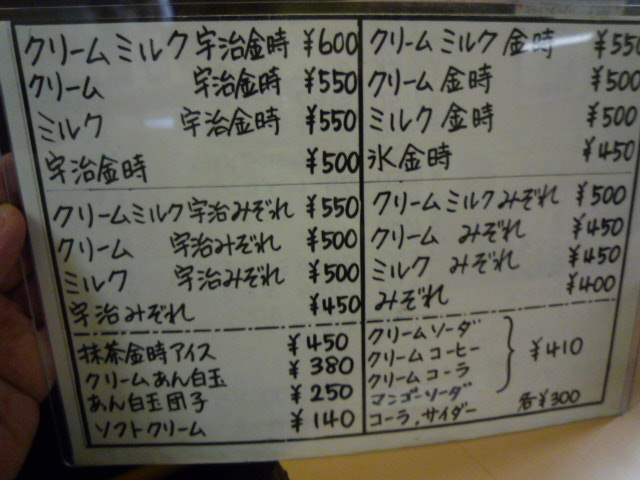 クリームミルク宇治金時 ¥600
クリーム 宇治金時 ¥550
ミルク 宇治金時 ¥550
宇治金時 ¥500
クリームミルク宇治みぞれ ¥550
クリーム 宇治みぞれ ¥500
ミルク 宇治みぞれ ¥500
宇治みぞれ ¥450
抹茶金時アイス ¥450
クリームあん白玉 ¥380
あん白玉団子 ¥250
ソフトクリーム ¥140
クリームミルク金時 ¥550
クリーム金時 ¥500
ミルク金時 ¥500
氷金時 ¥450
クリームミルクみぞれ ¥500
クリーム みぞれ ¥450
ミルク みぞれ ¥450
みぞれ ¥400
クリームソーダ
クリームコーヒー
クリームコーラ
¥410
マンゴーソーダ
コーラ,サイダー 各¥300